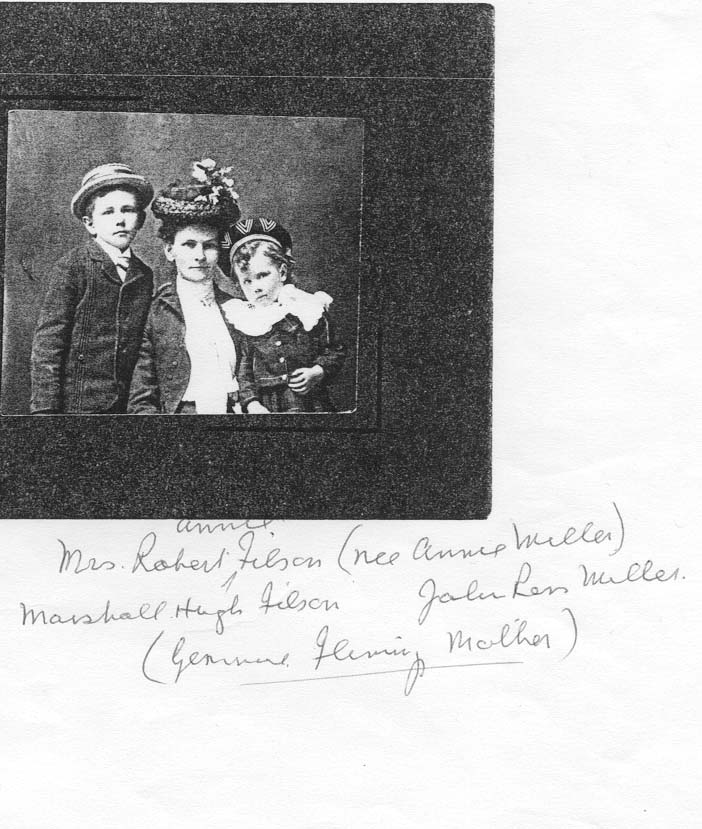 Annie
Mrs. Robert Filson (nee Annie Miller)
Marshall Hugh Filson John Miller.
( Fleming Mother)